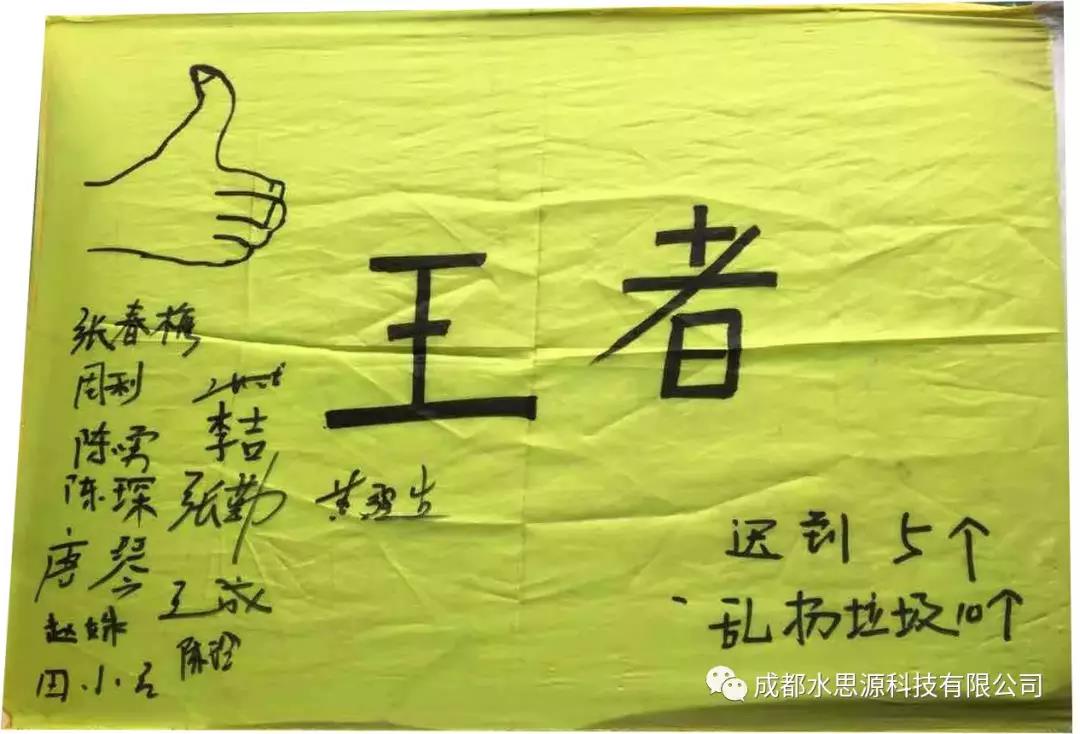 王者
张春梅
周利
李吉
陈勇
陈琛
张勤
唐琴
王成
赵妹
陈玲
田小名
迟到 5个
乱扔垃圾10个
成都水思源科技有限公司